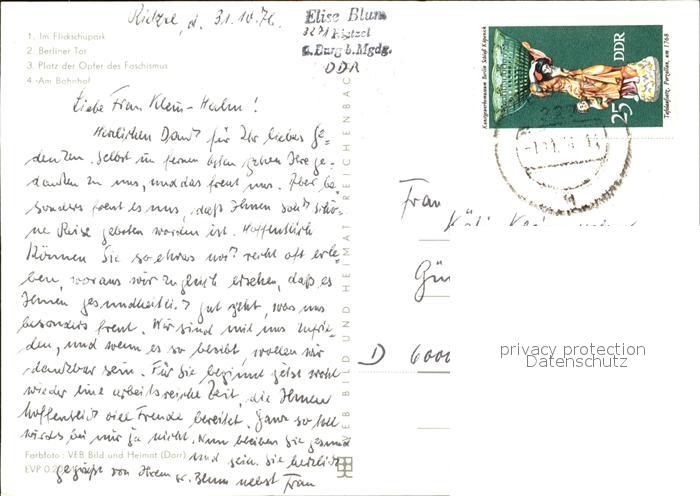 Rietzel, d. 31.10.76.
Elise Blum
3271 Rietzel
ü. Burg b. Mgdg.
DDR
1. Im Flickschupark
2. Berliner Tor
3. Platz der Opfer des Faschismus
4. Am Bahnhof
Liebe Frau Klems-Halm!
Herzlichen Dank für Ihr liebes Ge-
denken. Selbst im fernen Osten gehen Ihre Ge-
danken zu uns, und das freut uns. Aber be-
sonders freut es uns, daß Ihnen solch schö-
ne Reise geboten worden ist. Hoffentlich
können Sie so etwas noch recht oft erle-
ben, woraus wir zugleich ersehen, daß es
Ihnen gesundheitlich gut geht, was uns
besonders freut. Wir sind mit uns zufrie-
den, und wenn es so bleibt, wollen wir
dankbar sein. Für Sie beginnt jetzt wohl
wieder eine arbeitsreiche Zeit, die Ihnen
hoffentlich viel Freude bereitet. Ganz so toll
wird es bei mir ja nicht. Nun bleiben Sie gesund
und seien Sie herzlich
gegrüßt von Ihrem Blum nebst Frau
Farbfoto: VEB Bild und Heimat (Darr)
EVP 0.2
VEB BILD UND HEIMAT REICHENBACH
Kunstgewerbemuseum Berlin Schloß Köpenick
DDR
25
Tafelaufsatz, Porzellan, um 1768
Frau
Gün
D 6000
privacy protection
Datenschutz